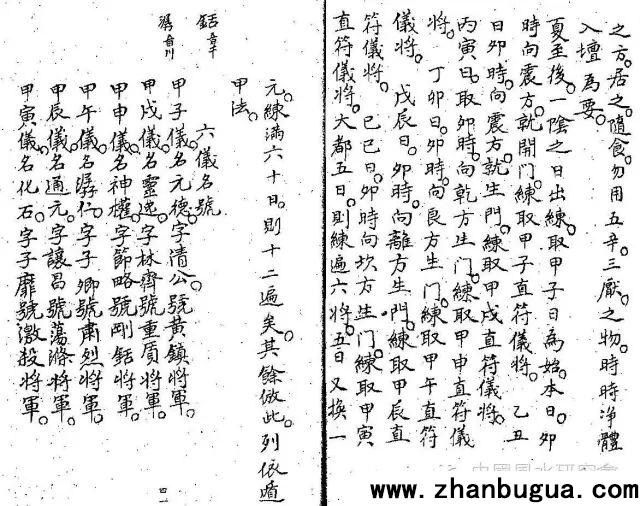 之方。居之。隨食。勿用五辛。三厭。之物。時時净體
入壇為要。
夏至後。一陰之日出練。取甲子日為始。本日。卯
時向震方。就開門練取甲子直符儀將。乙丑
日卯時。向震方。就生門。練取甲戌直符儀將。
丙寅日。取卯時。向乾方生门。練取甲申直符儀
將。丁卯日。卯時。向艮方生门。練取甲午直符
儀將。戊辰日。卯時。向離方生門。練取甲辰直
符儀將。己巳日。卯時向坎方生门。練取甲寅
直符儀將。大都五日。則練遍六將。五日又換一
元。練滿六十日。則十二遍矣。其餘倣此。列依遁
甲法。
六儀名號
甲子儀。名元德。字清公。號黃鎮將軍。
甲戌儀。名靈逸。字林齊。號重厲將軍。
甲申儀。名神權。字節略。號剛銛將軍。
甲午儀。名潺仁。字子卿。號肅烈將軍。
甲辰儀。名通元。字讓昌。號蕩滌將軍。
甲寅儀。名化石。字子靡。號激殺將軍。
銛
潺
四
中國風水研究會
www.zhanbugua.com